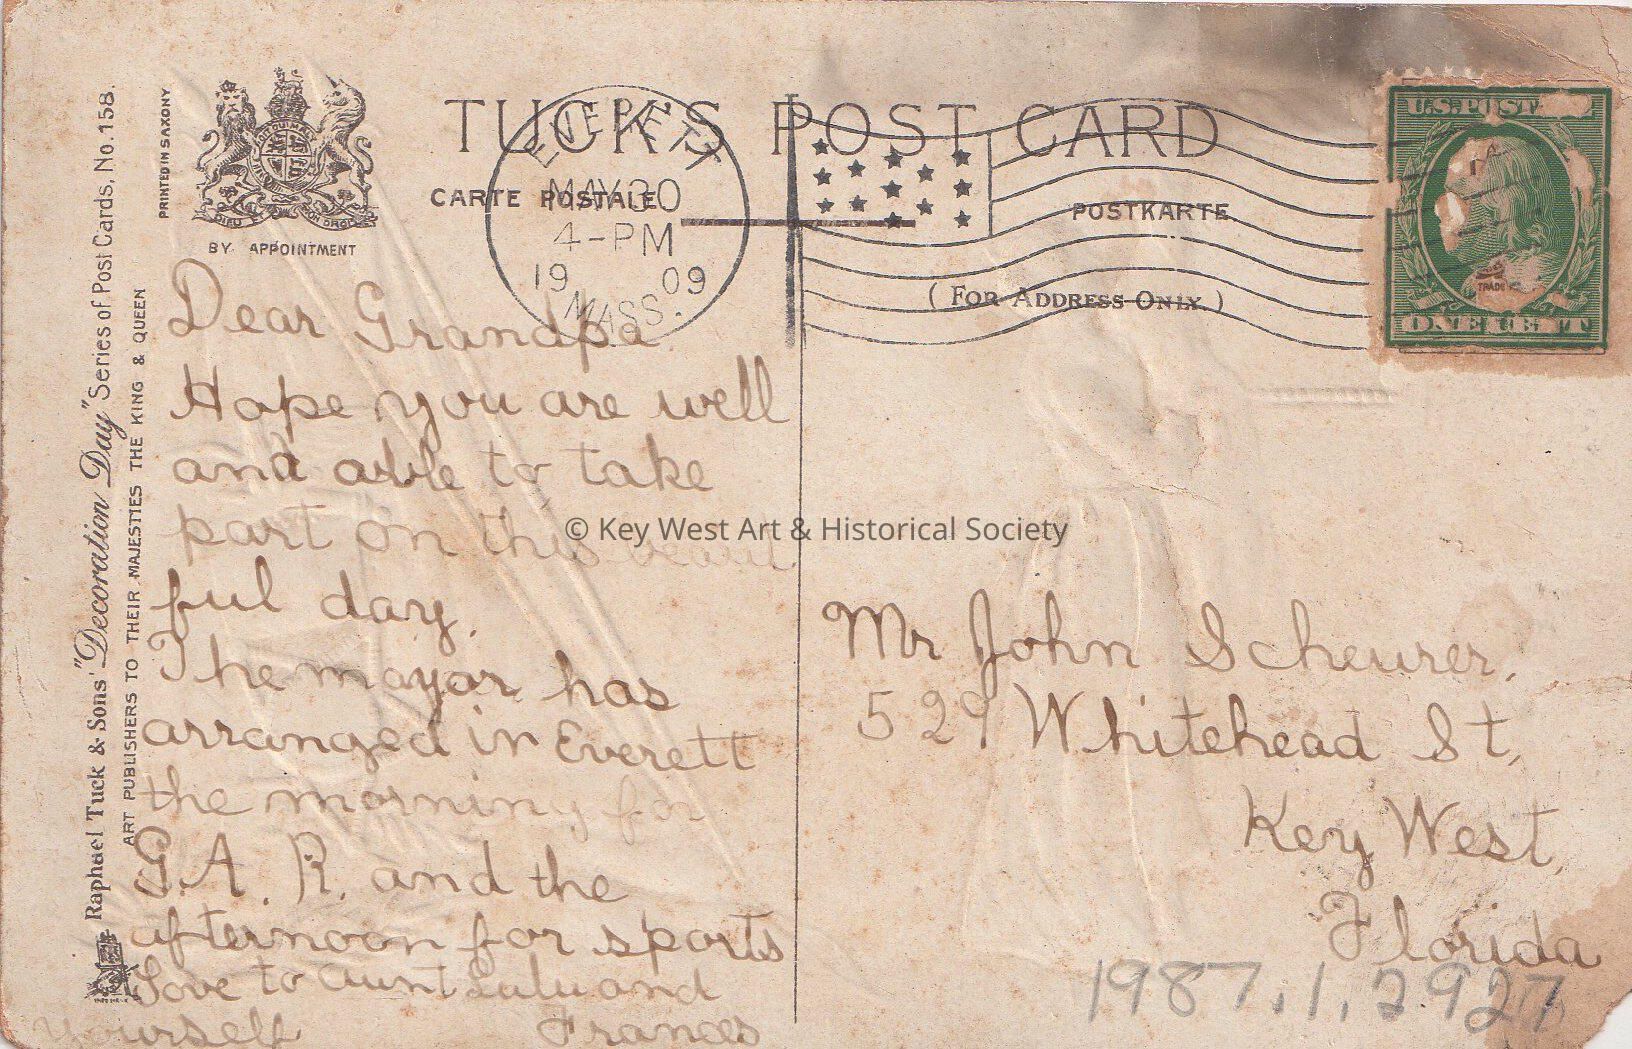 TUCK'S POST CARD
CARTE POSTALE
POSTKARTE
( FOR ADDRESS ONLY. )
BY APPOINTMENT
PRINTED IN SAXONY
Raphael Tuck & Sons' "Decoration Day" Series of Post Cards, No. 158.
ART PUBLISHERS TO THEIR MAJESTIES THE KING & QUEEN
EVERETT
MAY 30
4-PM
19 09
MASS.
U.S. POST
ONE CENT
TRADE
Dear Grandpa
Hope you are well
and able to take
part on this beauti
ful day.
The mayor has
arranged in Everett
the morning for
G.A.R. and the
afternoon for sports
Love to aunt Lulu and
yourself Frances
Mr John Scheurer,
529 Whitehead St,
Key West,
Florida
1987.1.2927
© Key West Art & Historical Society